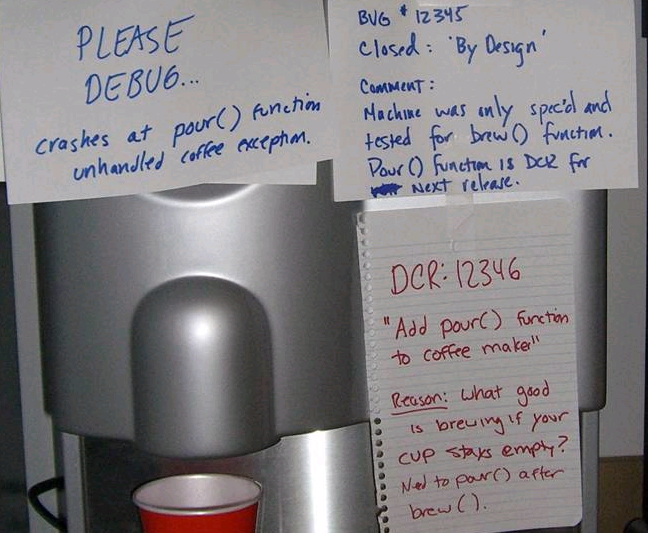 PLEASE
DEBUG...
crashes at pour() function
unhandled coffee exception.
BUG # 12345
Closed: 'By Design'
Comment:
Machine was only spec'd and
tested for brew() function.
Pour() function is DCR for
Next release.
DCR: 12346
"Add pour() function
to coffee maker"
Reason: What good
is brewing if your
cup stays empty?
Need to pour() after
brew().